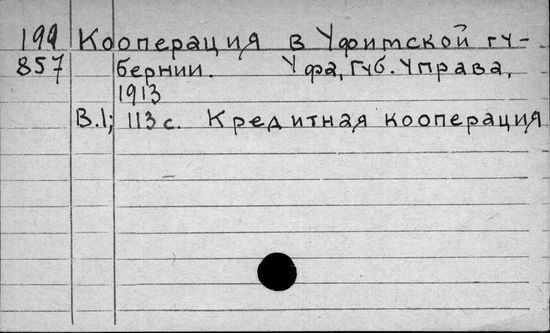 191 Кооперация в Уфимской гу-
857 бернии. Уфа, Губ. Управа,
1913
В.1; 113 с. Кредитная кооперация